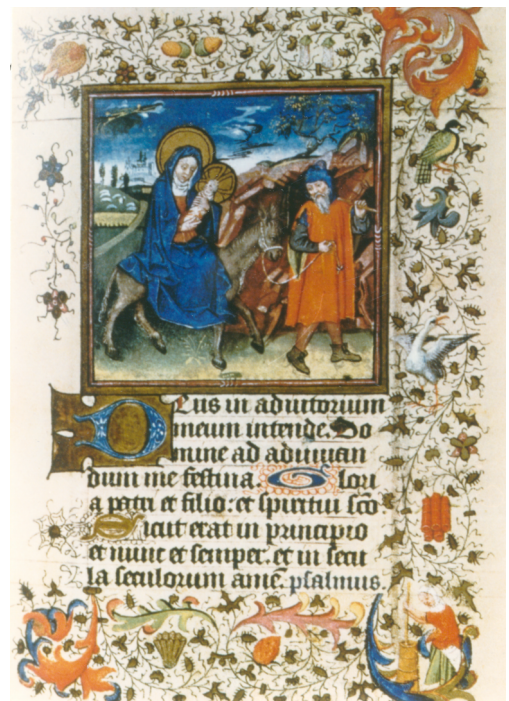 Deus in adiutorium
meum intende. Do
mine ad adiuuan
dum me festina. Glori
a patri et filio: et spiritui sc̄o
Sicut erat in principio
et nunc et semper. et in secu
la seculorum amē. psalmus.